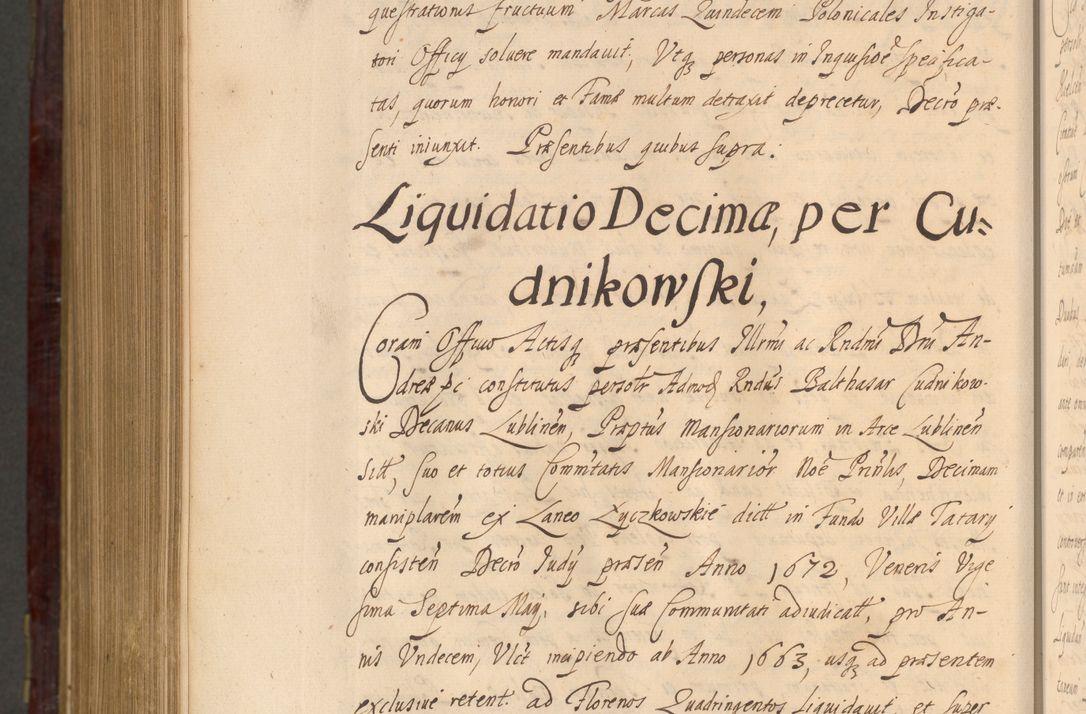 questrationis fructuum Marcas Quindecem Polonicales Instiga-
tori Officy solvere mandavit, Utq personas in Inquisioe specifica-
tas, quorum honori et Famæ multum detraxit deprecetur, Decro præ-
senti iniunxit. Præsentibus quibus supra.
Liquidatio Decimæ, per Cu-
dnikowski,
Coram Officio Actisq præsentibus Illrmi ac Rndmi Dni An-
dreæ constitutus persolr Admod Rndus Balthasar Cudnikow-
ski Decanus Lublinen, Præptus Mansionariorum in Arce Lublinen
Sitt, suo et totius Commitatis Mansionarior Noe Prinlis, Decimam
maniplarem ex Laneo Łyczkowskie dictt in Fundo Villæ Tatary
consisten Decro Judy præsen Anno 1672, Veneris Vige
sima Septima May, sibi suæ Communitati adiudicatt, pro An-
nis Undecem, Ulct incipiendo ab Anno 1663, usq ad præsentem
exclusive retent. ad Florenos Quadringentos Liquidavit et super